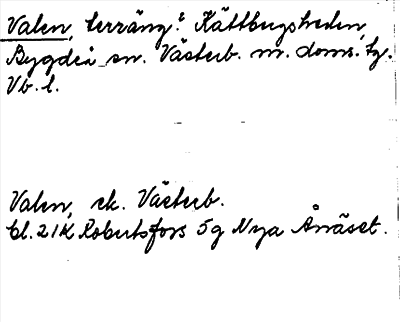 Valen, terräng? Kättbergsheden,
Bygdeå sn. Västerb. m. doms. tg.
Vb. l.
Valen, ek. Västerb.
bl. 21K Robertsfors 5g Nya Ånäset.